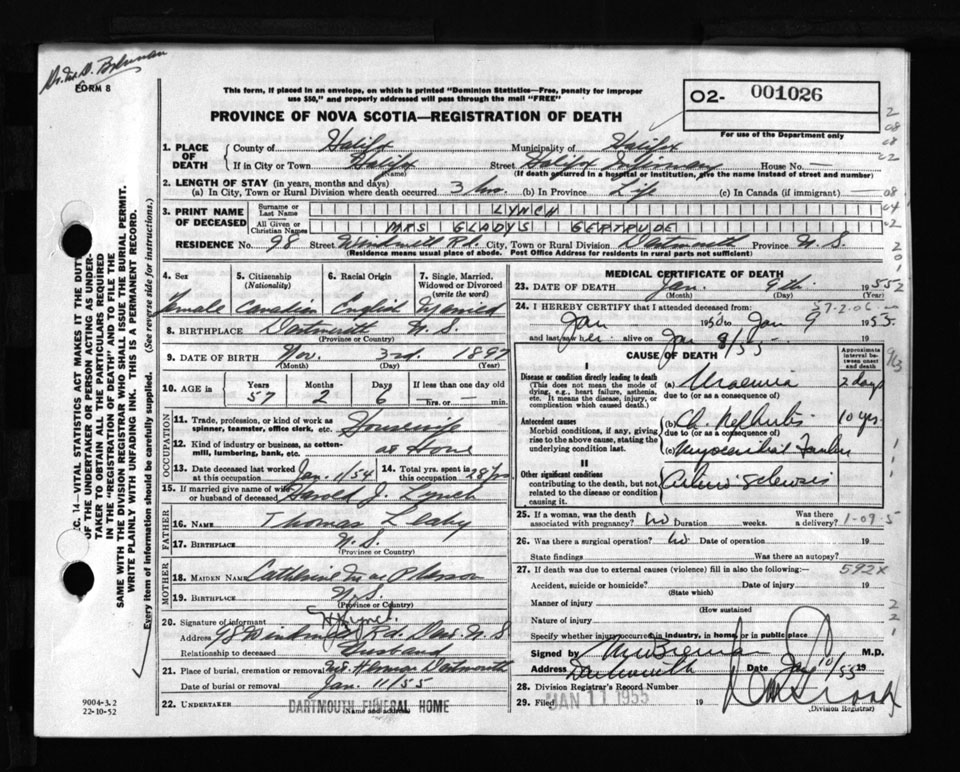 Dr. M. D. Brennan
FORM 8
This form, if placed in an envelope, on which is printed "Dominion Statistics—Free, penalty for improper
use $50," and properly addressed will pass through the mail "FREE"
O2- 001026
For use of the Department only
PROVINCE OF NOVA SCOTIA—REGISTRATION OF DEATH
1. PLACE OF DEATH
County of Halifax Municipality of Halifax
If in City or Town Halifax Street Halifax Infirmary House No. —
(Name) (If death occurred in a hospital or institution, give the name instead of street and number)
2. LENGTH OF STAY (in years, months and days)
(a) In City, Town or Rural Division where death occurred 3 hrs (b) In Province Life (c) In Canada (if immigrant) —
3. PRINT NAME OF DECEASED
Surname or Last Name LYNCH
All Given or Christian Names MRS GLADYS GERTRUDE
RESIDENCE No. 98 Street Windmill Rd. City, Town or Rural Division Dartmouth Province N.S.
(Residence means usual place of abode. Post Office Address for residents in rural parts not sufficient)
4. Sex Female
5. Citizenship (Nationality) Canadian
6. Racial Origin English
7. Single, Married, Widowed or Divorced (write the word) Married
8. BIRTHPLACE Dartmouth N.S.
(Province or Country)
9. DATE OF BIRTH Nov. 3rd. 1897
(Month) (Day) (Year)
10. AGE in Years 57 Months 2 Days 6 If less than one day old hrs. or — min.
OCCUPATION
11. Trade, profession, or kind of work as spinner, teamster, office clerk, etc. Housewife
12. Kind of industry or business, as cotton-mill, lumbering, bank, etc. at Home
13. Date deceased last worked at this occupation Jan. 1/54
14. Total yrs. spent in this occupation 28 yrs
15. If married give name of wife or husband of deceased Harold J. Lynch
FATHER
16. NAME Thomas Leahy
17. BIRTHPLACE N.S.
(Province or Country)
MOTHER
18. MAIDEN NAME Catherine MacPherson
19. BIRTHPLACE N.S.
(Province or Country)
20. Signature of informant H J Lynch
Address 98 Windmill Rd. Dart. N.S
Relationship to deceased Husband
21. Place of burial, cremation or removal Mt. Hermon Dartmouth
Date of burial or removal Jan. 11/55
22. UNDERTAKER DARTMOUTH FUNERAL HOME
Name and Address
MEDICAL CERTIFICATE OF DEATH
23. DATE OF DEATH Jan. 9th. 1955
(Month) (Day) (Year)
24. I HEREBY CERTIFY that I attended deceased from:
Jan 1950 to Jan 9 1955
and last saw her alive on Jan 9/55 19
CAUSE OF DEATH
Approximate interval between onset and death
I
Disease or condition directly leading to death
(This does not mean the mode of dying, e.g., heart failure, asthenia, etc. It means the disease, injury, or complication which caused death.)
(a) Uraemia 2 days
due to (or as a consequence of)
Antecedent causes
Morbid conditions, if any, giving rise to the above cause, stating the underlying condition last.
(b) Ch. Nephritis 10 yrs.
due to (or as a consequence of)
(c) Myocardial Failure
II
Other significant conditions
contributing to the death, but not related to the disease or condition causing it.
Arterio-sclerosis
25. If a woman, was the death associated with pregnancy? No Duration — weeks. Was there a delivery? 1-09-5
26. Was there a surgical operation? No Date of operation 19
State findings Was there an autopsy?
27. If death was due to external causes (violence) fill in also the following:— 592X
Accident, suicide or homicide? Date of injury 19
(State which)
Manner of injury
(How sustained
Nature of injury
Specify whether injury occurred in industry, in home, or in public place
Signed by M D Brennan M.D.
Address Dartmouth Date Jan 10/55 19
28. Division Registrar's Record Number
29. Filed JAN 11 1955 19
(Division Registrar)
SEC. 14—VITAL STATISTICS ACT MAKES IT THE DUTY
OF THE UNDERTAKER OR PERSON ACTING AS UNDER-
TAKER TO OBTAIN ALL THE PARTICULARS REQUIRED
IN THE "REGISTRATION OF DEATH" AND TO FILE THE
SAME WITH THE DIVISION REGISTRAR WHO SHALL ISSUE THE BURIAL PERMIT.
WRITE PLAINLY WITH UNFADING INK. THIS IS A PERMANENT RECORD.
Every item of information should be carefully supplied. (See reverse side for instructions.)
9004-3.2
22-10-52